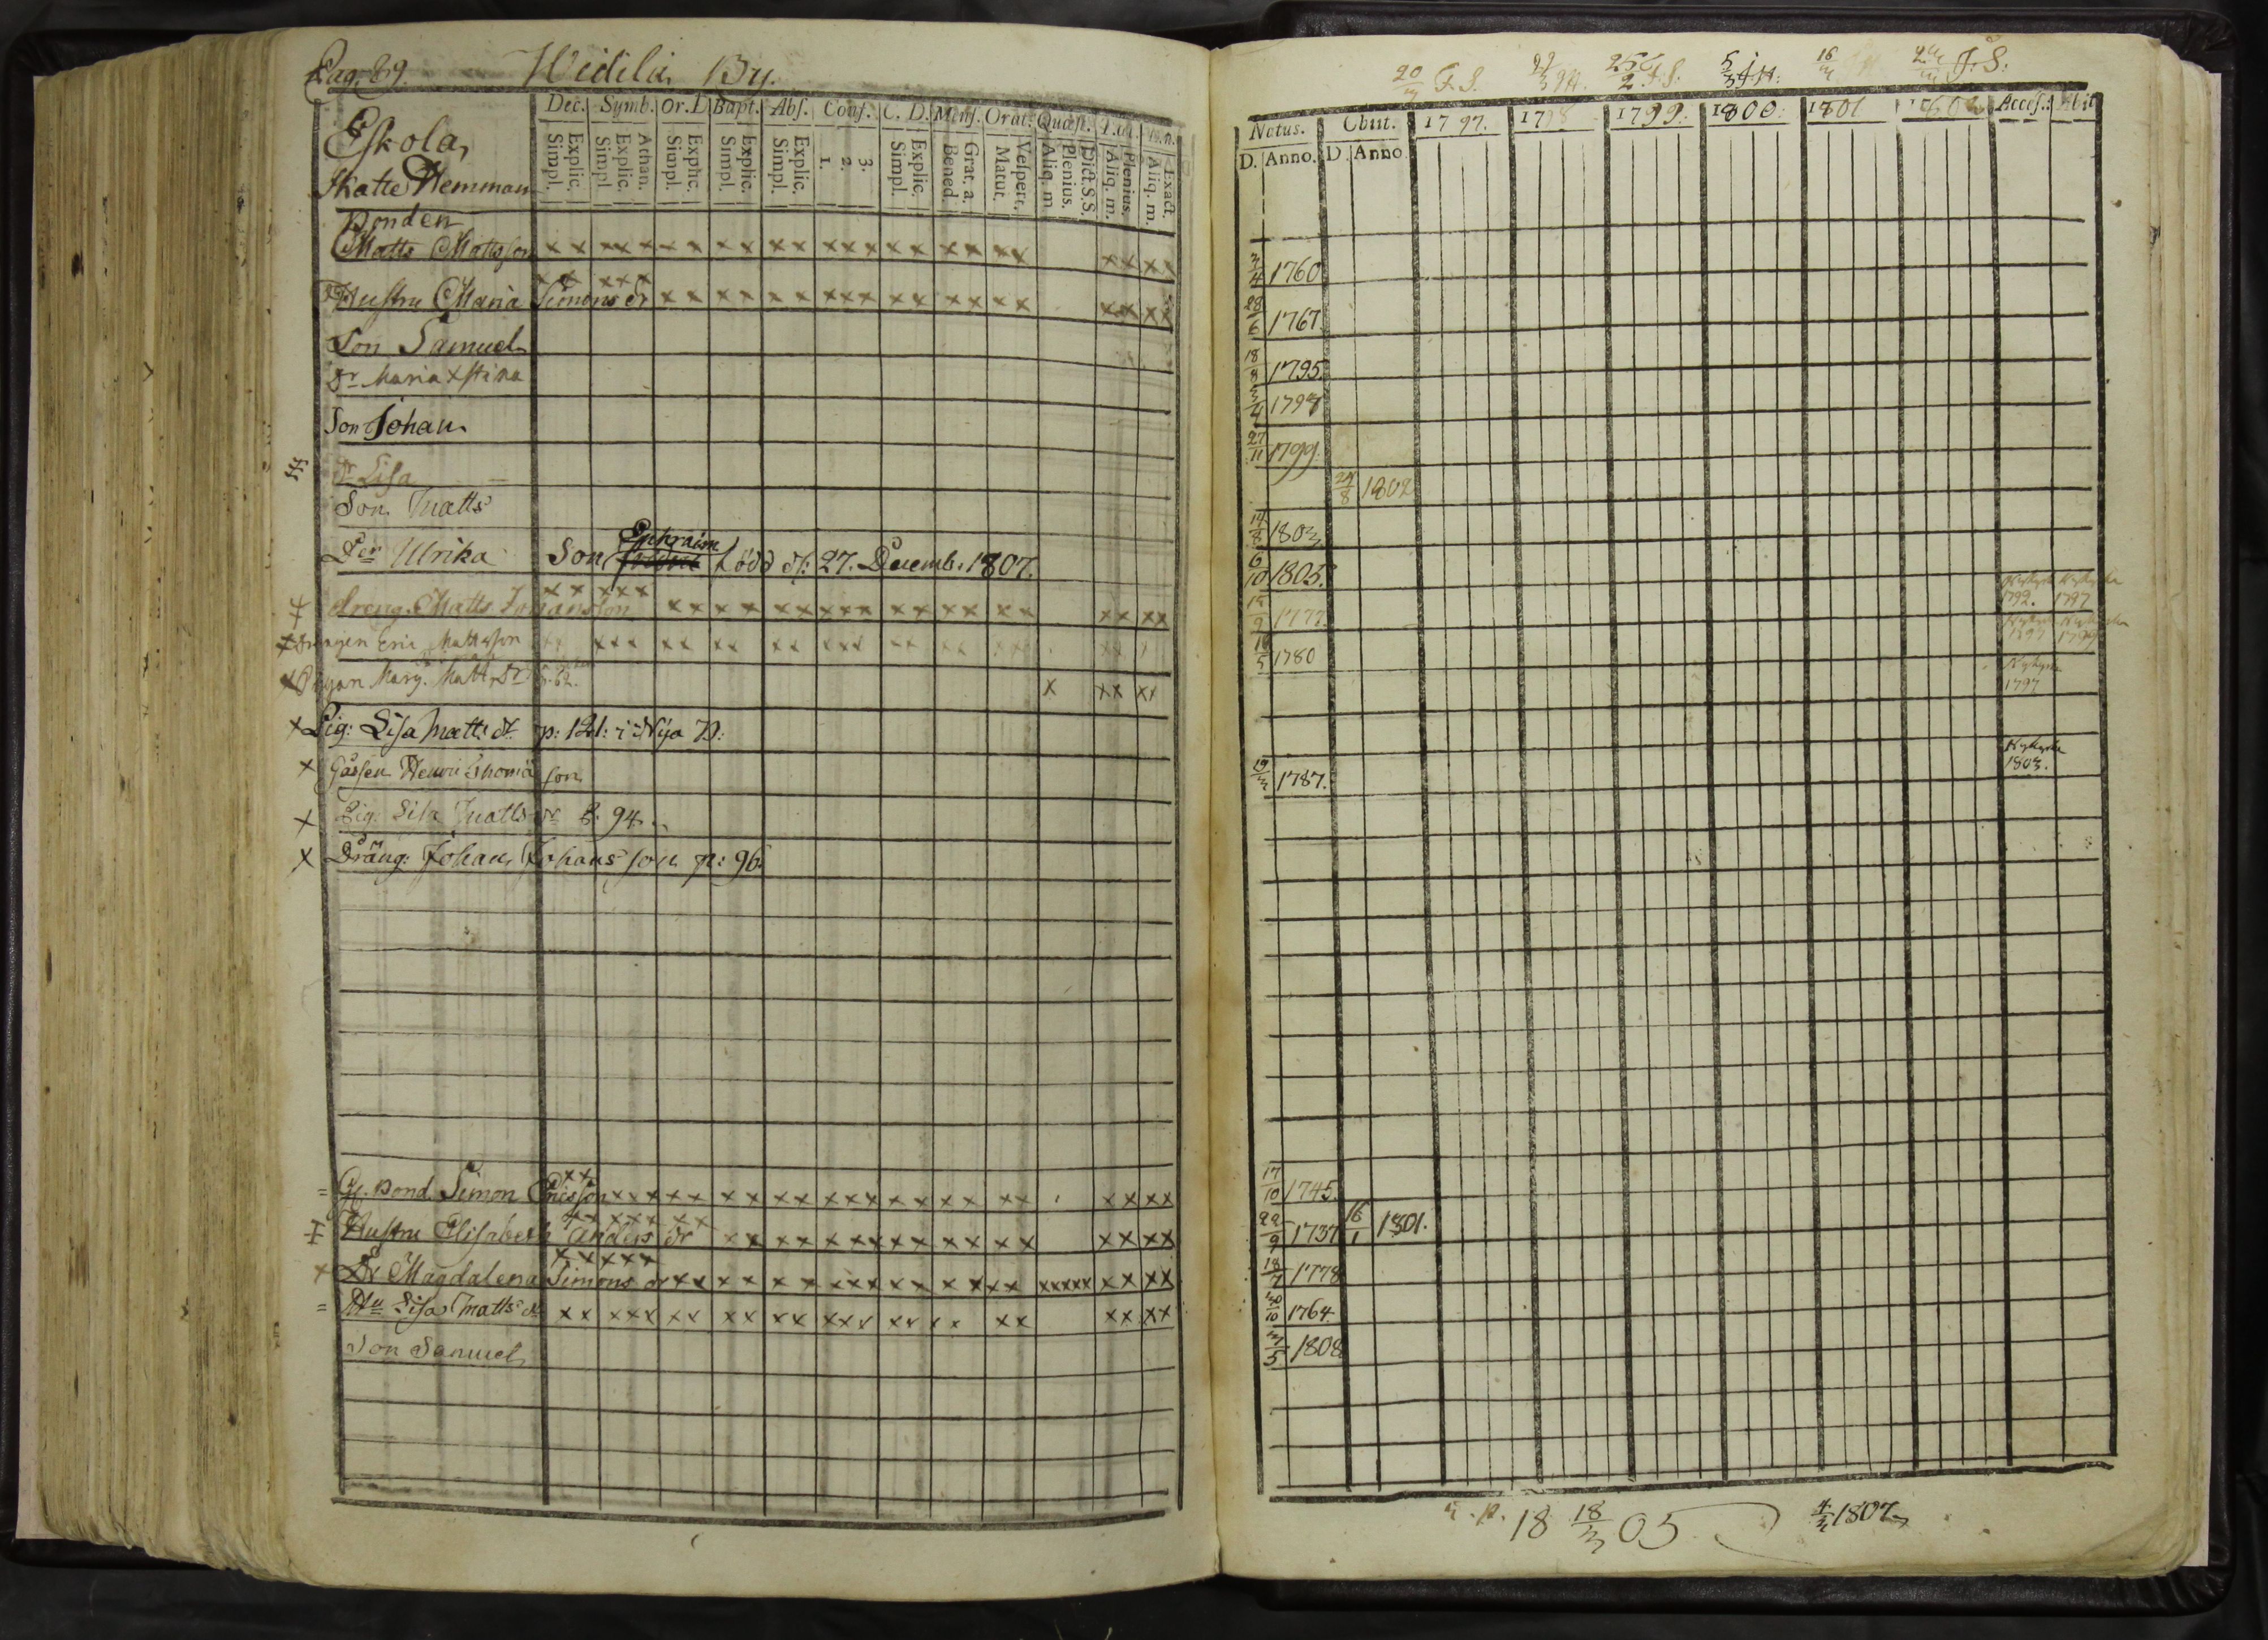 Pag. 89. Widila By.
Dec. Symb. Or. D Bapt. Abs. Conf. C. D. Mens. Orat. Quæst.
Eskola,
Skatte Hemman
Explic. Simpl. Athan. Explic. Simpl Explic. Simpl. Explic. Simpl. Explic. Simpl. 3. 2. 1. Explic. Simpl. Grat. a. Bened. Vespert. Matut. Dict. S.S. Plenius. Aliq. m Plenius. Aliq. m. Exact. Aliq. m.
Bonden
Matts Mattsson
Hustru Maria Simons dr
Son Samuel
Dr Maria Xstina
Son Johan
Dr Lisa
Son Matts
Dr Ulrika Son Ephraim född d: 27. Decemb. 1807.
dreng. Matts Johansson
Drengen Eric Mattsson
Pigan Marg. Matts dr
Pig: Lisa Matts dr p: 121: i Nya B:
Gåssen Henric Thomæ son
Pig. Lisa Matts dr P. 94.
Dräng: Johan Johans son p: 96.
Gl. Bond. Simon Ericsson
Hustru Elisabeth Anders dr
Dr Magdalena Simons dr
Hu Lisa Matts dr
Son Samuel
20/3 F. S. 25/2 F. S. 5/3 16/3 F: S:
Natus. Obiit. 1797. 1798 1799. 1800. 1801 1802 Access. Abit
D. Anno. D. Anno.
3/4 1760
28/6 1767.
18/8 1795.
3/4 1797
27/11 1799.
24/8 1802
14/2 1803
6/10 1805.
1792. 1797
15/9 1777.
1797 1799
10/5 1780
1797
1803.
19/3 1787.
17/10 1745.
22/9 1737 16/1 1801.
18/7 1778
30/10 1764.
3/5 1808
18 18/3 05
4/3 1807